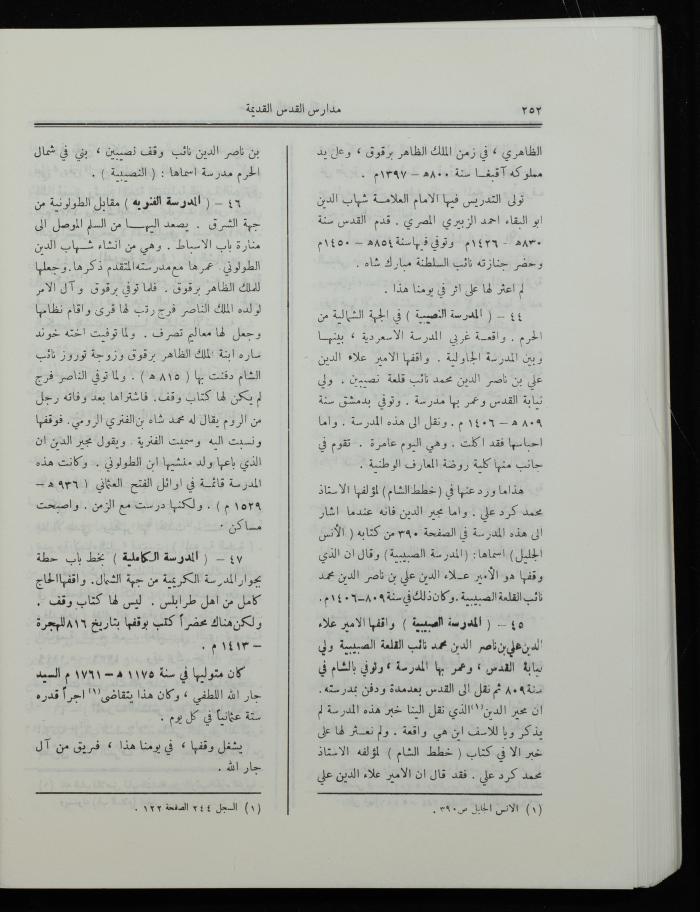 ٢٥٢
مدارس القدس القديمة
الظاهري ، في زمن الملك الظاهر برقوق ، وعلى يد
مملوكه آقبغا سنة ٨٠٠ه‍ – ١٣٩٧م .
تولى التدريس فيها الامام العلامة شهاب الدين
ابو البقاء احمد الزبيري المصري . قدم القدس سنة
٨٣٠ه‍ – ١٤٢٦م وتوفي فيها سنة ٨٥٤ه‍ – ١٤٥٠م
وحضر جنازته نائب السلطنة مبارك شاه .
لم اعثر لها على اثر في يومنا هذا .
٤٤ – ( المدرسة النصيبية ) في الجهة الشمالية من
الحرم . واقعة غربي المدرسة الاسعردية ، بينها
وبين المدرسة الجاولية . واقفها الامير علاء الدين
علي بن ناصر الدين محمد نائب قلعة نصيبين . ولي
نيابة القدس وعمر بها مدرسة . وتوفي بدمشق سنة
٨٠٩ ه‍ – ١٤٠٦ م . ونقل الى هذه المدرسة . واما
احباسها فقد اكلت . وهي اليوم عامرة . تقوم في
جانب منها كلية روضة المعارف الوطنية .
هذا ما ورد عنها في (خطط الشام) لمؤلفها الاستاذ
محمد كرد علي . واما مجير الدين فانه عندما اشار
الى هذه المدرسة في الصفحة ٣٩٠ من كتابه ( الأنس
الجليل ) اسماها : (المدرسة الصبيبية) وقال ان الذي
وقفها هو الأمير علاء الدين علي بن ناصر الدين محمد
نائب القلعة الصبيبية . وكان ذلك في سنة ٨٠٩–١٤٠٦م.
٤٥ – ( المدرسة الصبيبية ) واقفها الامير علاء
الدين علي بن ناصر الدين محمد نائب القلعة الصبيبية ولي
نيابة القدس ، وعمر بها المدرسة ، وتوفي بالشام في
سنة ٨٠٩ ثم نقل الى القدس بعد مدة ودفن بمدرسته .
ان مجير الدين(١) الذي نقل الينا خبر هذه المدرسة لم
يذكر ويا للاسف اين هي واقعة . ولم نعثر لها على
خبر الا في كتاب ( خطط الشام ) لمؤلفه الاستاذ
محمد كرد علي . فقد قال ان الامير علاء الدين علي
(١) الانس الجليل ص ٣٩٠ .
بن ناصر الدين نائب وقف نصيبين ، بني في شمال
الحرم مدرسة اسماها : ( النصيبية ) .
٤٦ – ( المدرسة الفنريه ) مقابل الطولونية من
جهة الشرق . يصعد اليها من السلم الموصل الى
منارة باب الاسباط . وهي من انشاء شهاب الدين
الطولوني . عمرها مع مدرسته المتقدم ذكرها . وجعلها
للملك الظاهر برقوق . فلما توفي برقوق وآل الامر
لولده الملك الناصر فرج رتب لها قرى واقام نظامها
وجعل لها معاليم تصرف . ولما توفيت اخته خوند
ساره ابنة الملك الظاهر برقوق وزوجة نوروز نائب
الشام دفنت بها ( ٨١٥ ه‍ ) . ولما توفي الناصر فرج
لم يكن لها كتاب وقف . فاشتراها بعد وفاته رجل
من الروم يقال له محمد شاه بن الفنري الرومي . فوقفها
ونسبت اليه وسميت الفنرية . ويقول مجير الدين ان
الذي باعها ولد منشيها ابن الطولوني . وكانت هذه
المدرسة قائمة في اوائل الفتح العثماني ( ٩٣٦ ه‍ –
١٥٢٩ م ) . ولكنها درست مع الزمن . واصبحت
مساكن .
٤٧ – ( المدرسة الكاملية ) بخط باب حطة
بجوار المدرسة الكريمية من جهة الشمال . واقفها الحاج
كامل من اهل طرابلس . ليس لها كتاب وقف .
ولكن هناك محضراً كتب بوقفها بتاريخ ٨١٦ للهجرة
– ١٤١٣ م .
كان متوليها في سنة ١١٧٥ ه‍ – ١٧٦١ م السيد
جار الله اللطفي ، وكان هذا يتقاضى(١) اجراً قدره
ستة عثمانياً في كل يوم .
يشغل وقفها ، في يومنا هذا ، فريق من آل
جار الله .
(١) السجل ٢٤٤ الصفحة ١٢٢ .